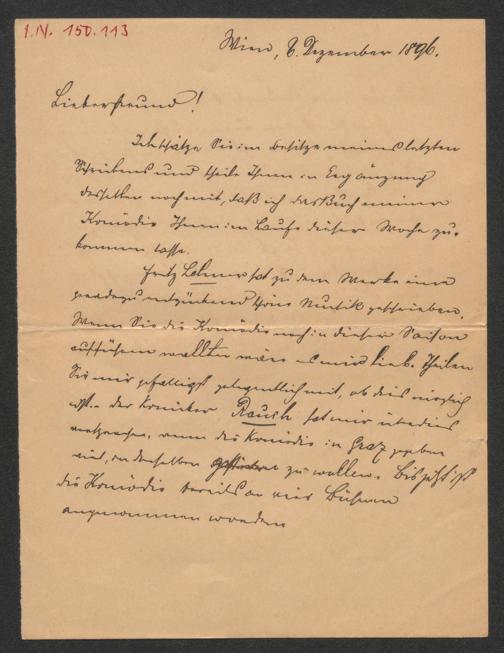 I.N. 150.113
Wien, 8. Dezember 1896.
Lieber Freund!
Ich schätze Sie im Besitze meines letzten
Schreibens und theile Ihnen in Ergänzung
desselben noch mit, daß ich das Buch meiner
Komödie Ihnen im Laufe dieser Woche zu-
kommen lasse.
Fritz Lehner hat zu dem Werke eine
geradezu entzückend schöne Musik geschrieben.
Wenn Sie die Komödie noch in dieser Saison
aufführen wollten wäre es mir lieb. Theilen
Sie mir gefälligst gelegentlich mit, ob dies möglich
ist. der Komiker Rauch hat mir überdies
versprochen, wenn die Komödie in Graz gegeben
wird, in derselben zu wollen. Bis jetzt ist
die Komödie bereits an vier Bühnen
angenommen worden